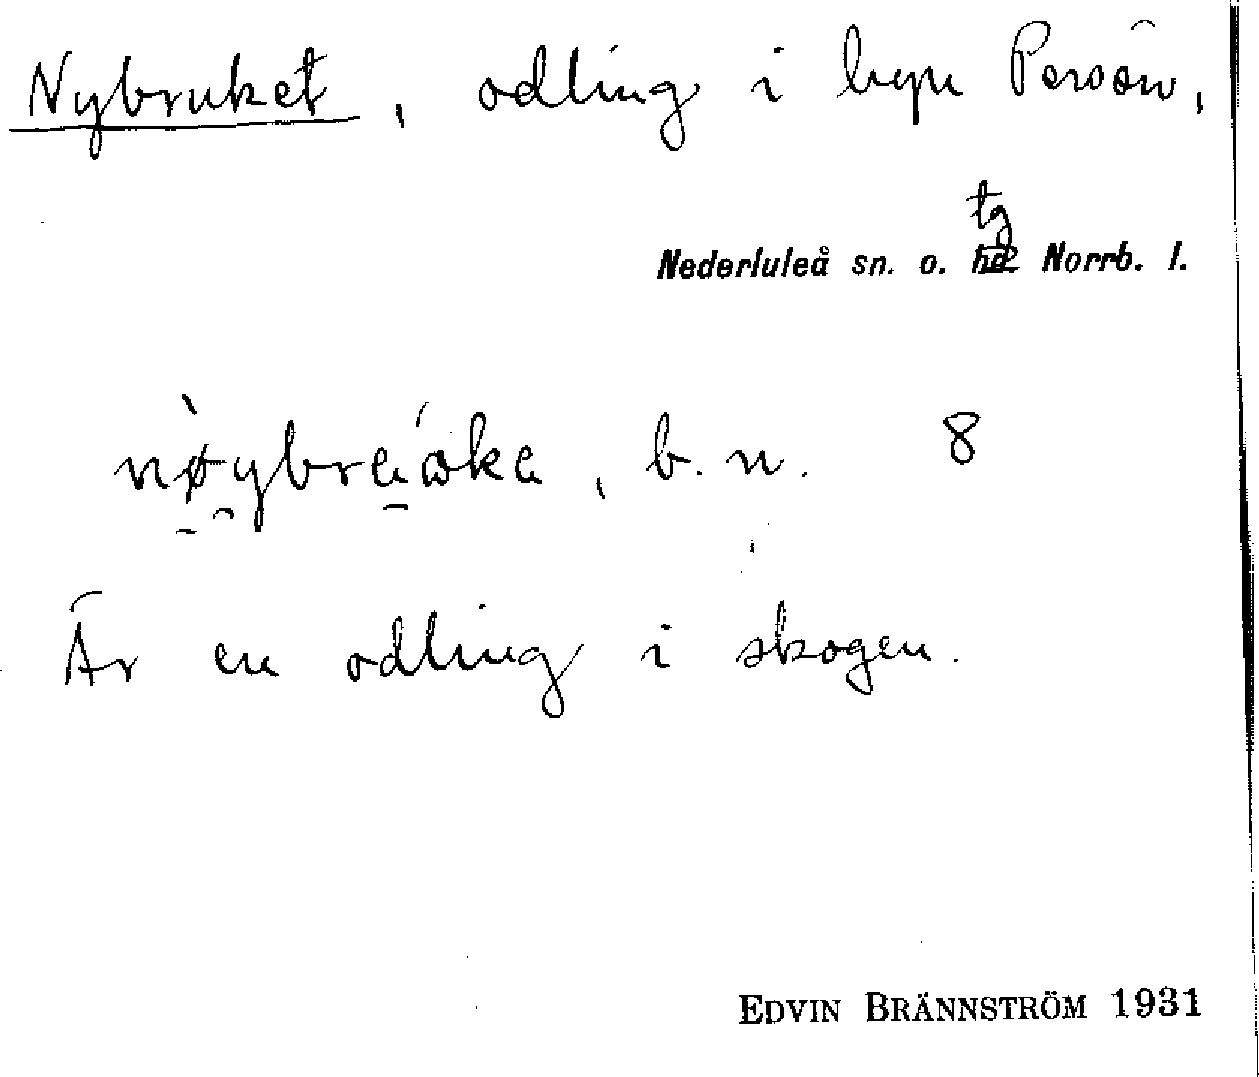 Nybruket, odling i byn Persön,
tg
Nederluleå sn. o. hd. Norrb. l.
b. n. 8
Är en odling i skogen.
EDVIN BRÄNNSTRÖM 1931